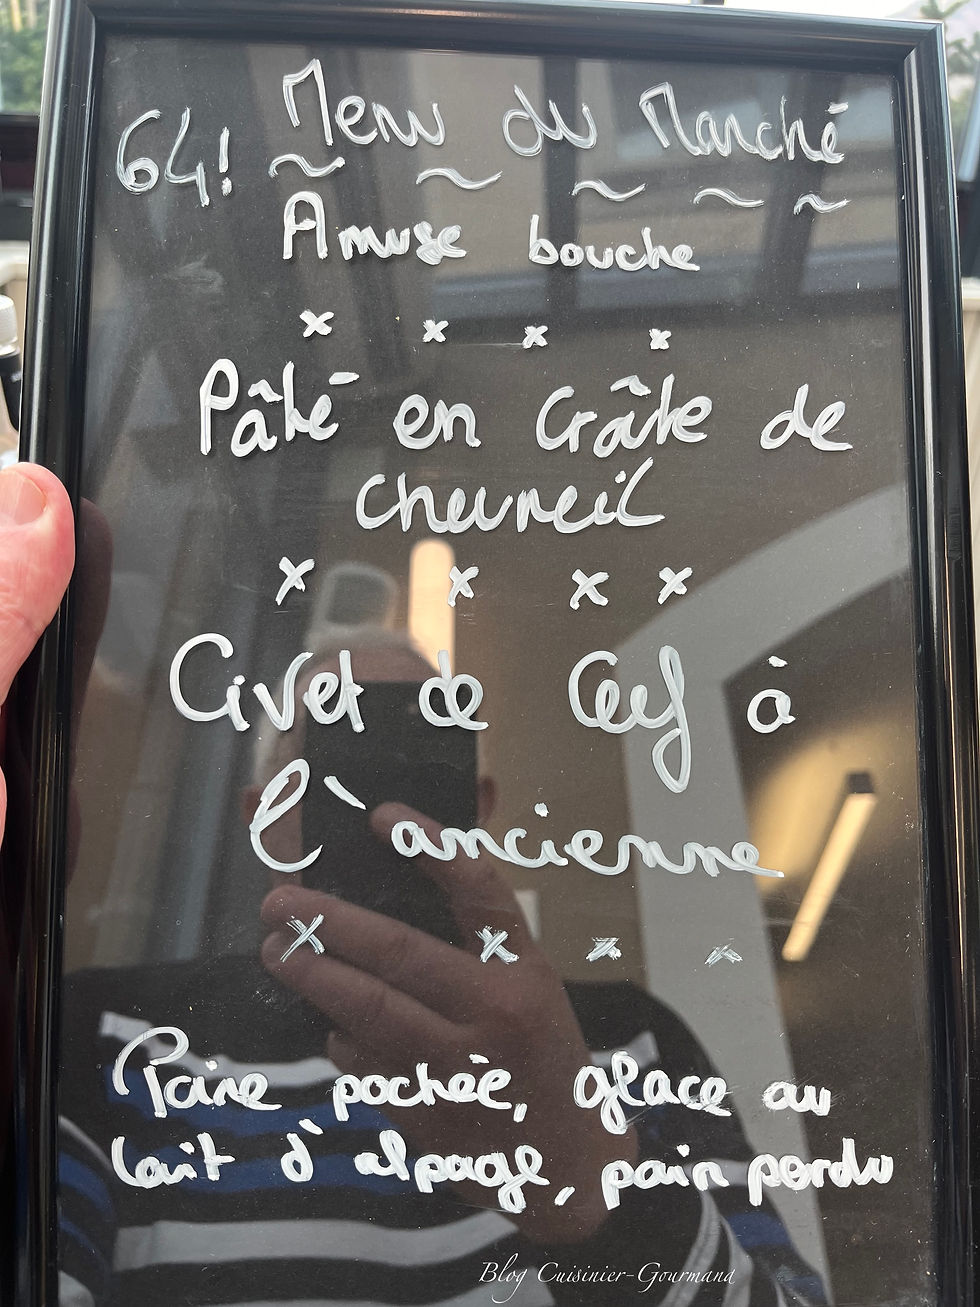 64! Menu du Marché
Amuse bouche
x x x x
Pâté en Crâte de
chevreil
x x x x
Civet de Cerf à
l'ancienne
x x x x
Poire pochée, glace au
lait d'alpage, pain perdu
Blog Cuisinier-Gourmand